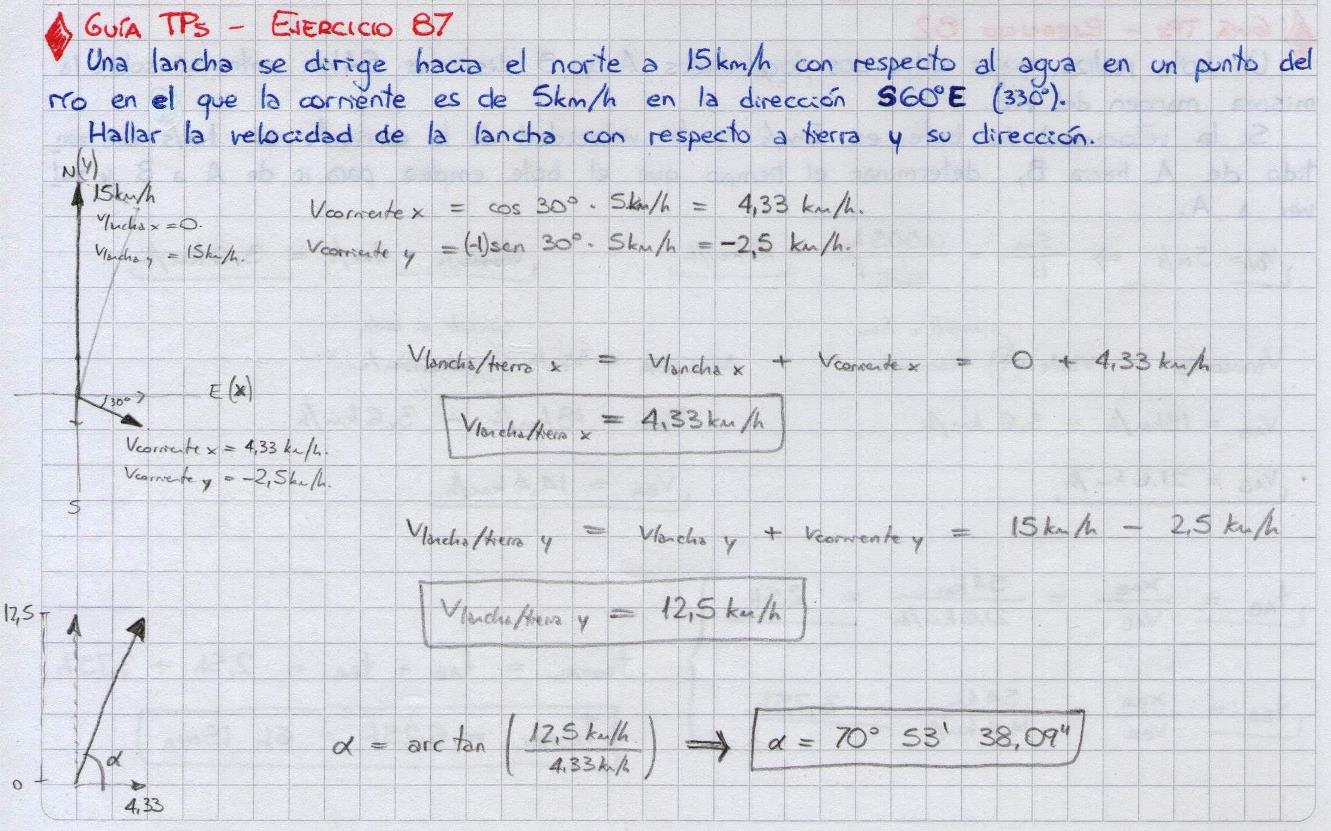 GUÍA TPs - EJERCICIO 87
Una lancha se dirige hacia el norte a 15km/h con respecto al agua en un punto del
río en el que la corriente es de 5km/h en la dirección S60°E (330°).
Hallar la velocidad de la lancha con respecto a tierra y su dirección.
N(Y)
15km/h
Vlncha x = 0.
Vlancha y = 15km/h.
Vcorriente x = cos 30° · 5km/h = 4,33 km/h.
Vcorriente y = (-1)sen 30° · 5km/h = -2,5 km/h.
Vlancha/tierra x = Vlancha x + Vcorriente x = 0 + 4,33 km/h
30°
E (X)
Vlancha/tierra x = 4,33 km/h
Vcorriente x = 4,33 km/h.
Vcorriente y = -2,5km/h.
S
Vlancha/tierra y = Vlancha y + Vcorriente y = 15 km/h - 2,5 km/h
Vlancha/tierra y = 12,5 km/h
12,5
α = arc tan (12,5 km/h / 4,33 km/h) ⟹ α = 70° 53' 38,09"
α
0
4,33